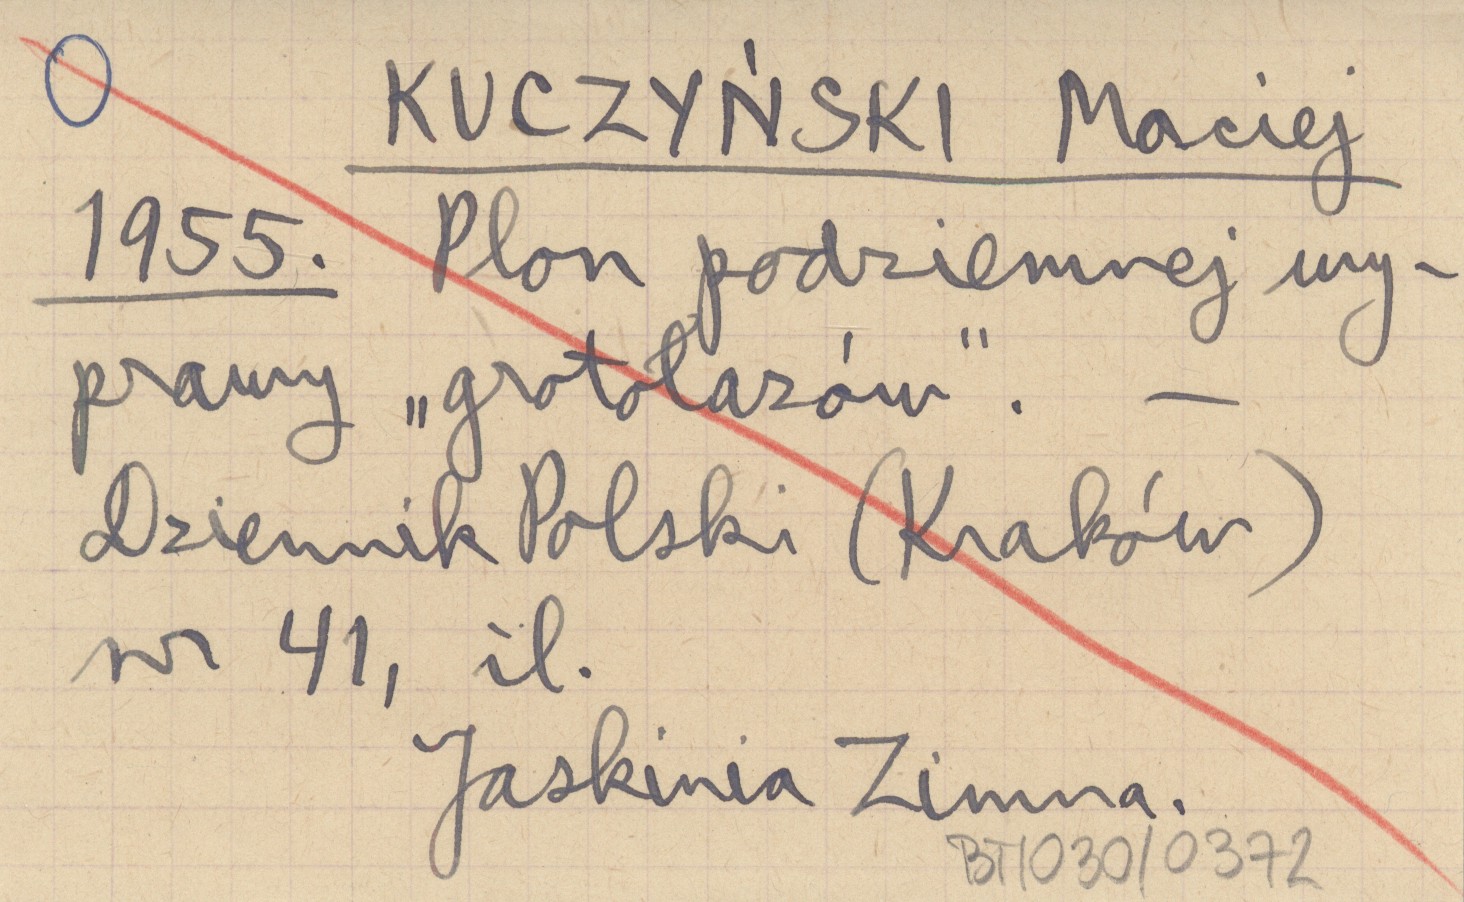 KUCZYŃSKI Maciej
1955. Plon podziemnej wy-
prawy „grotołazów". —
Dziennik Polski (Kraków)
nr 41, il.
Jaskinia Zimna.
BT/030/0372